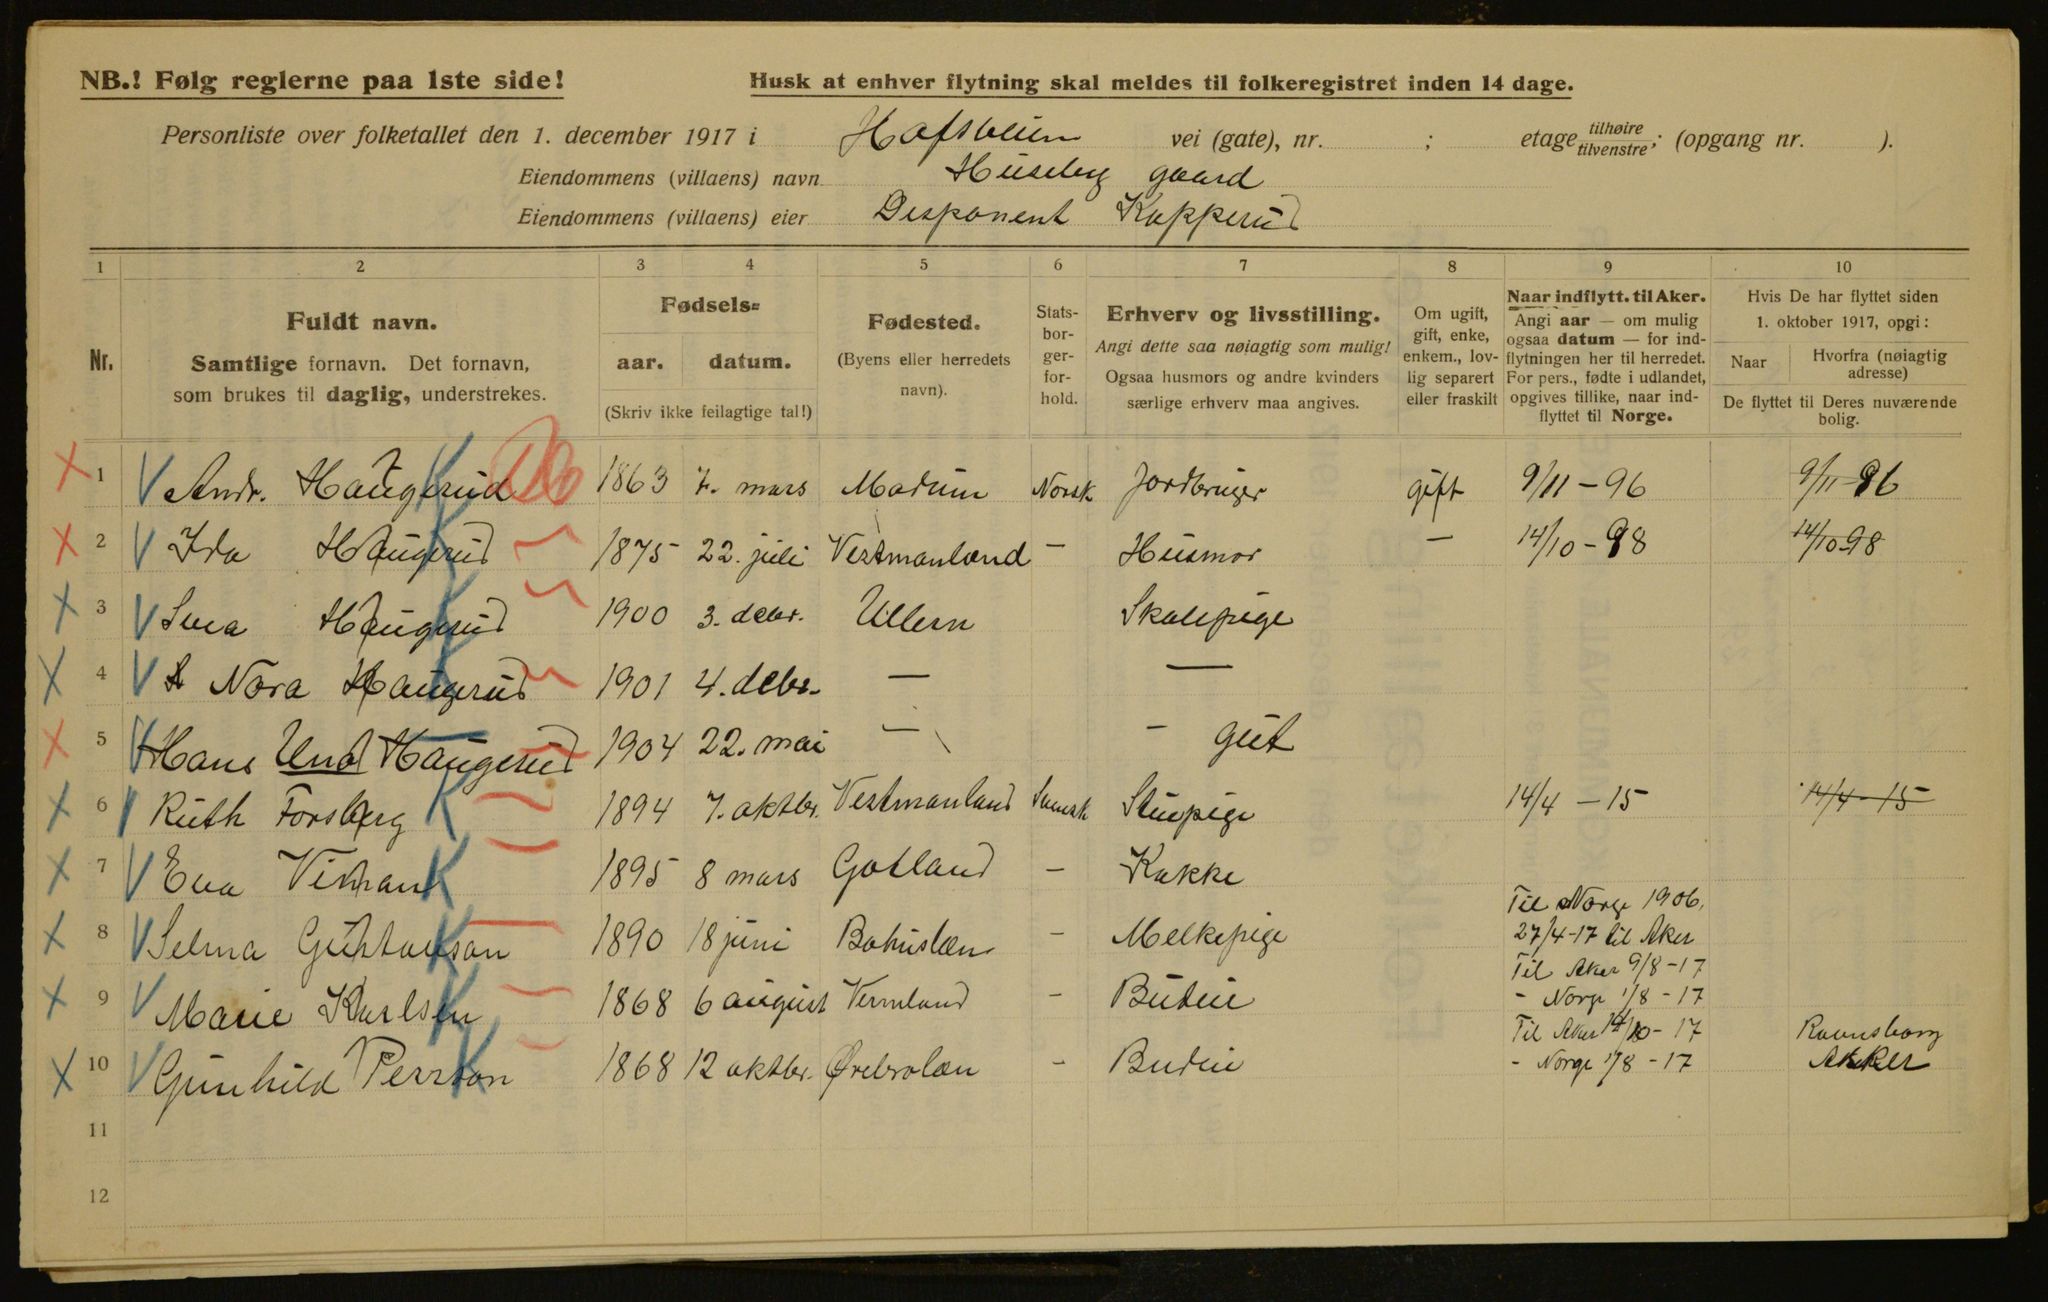 NB.! Følg reglerne paa 1ste side!
Husk at enhver flytning skal meldes til folkeregistret inden 14 dage.
Personliste over folketallet den 1. december 1917 i vei (gate), nr. ; etage tilhøire tilvenstre; (opgang nr. ).
Eiendommens (villaens) navn Huseby gaard
Eiendommens (villaens) eier Disponent Kopperud
1 2 3 4 5 6 7 8 9 10
Nr.
Fuldt navn.
Samtlige fornavn. Det fornavn,
som brukes til daglig, understrekes.
Fødsels-
aar. datum.
(Skriv ikke feilagtige tal!)
Fødested.
(Byens eller herredets
navn).
Stats-
bor-
ger-
for-
hold.
Erhverv og livsstilling.
Angi dette saa nøiagtig som mulig!
Ogsaa husmors og andre kvinders
særlige erhverv maa angives.
Om ugift,
gift, enke,
enkem., lov-
lig separert
eller fraskilt
Naar indflytt. til Aker.
Angi aar — om mulig
ogsaa datum — for ind-
flytningen her til herredet.
For pers., fødte i udlandet,
opgives tillike, naar ind-
flyttet til Norge.
Hvis De har flyttet siden
1. oktober 1917, opgi:
Naar Hvorfra (nøiagtig
adresse)
De flyttet til Deres nuværende
bolig.
1 Andr. Haugerud 1863 7. mars Modum Norsk Jordbruger gift 9/11 – 96 9/11 – 96
2 Ida Haugerud 1875 22. juli Vestmanland – Husmor – 14/10 – 98 14/10 98
3 Haugerud 1900 3. debr. Ullern Skolepige
4 Nora Haugerud 1901 4. debr. — —
5 Hans Haugerud 1904 22. mai — – gut
6 Ruth Forsberg 1894 7. oktbr. Vestmanland Svensk Stuepige 14/4 – 15 14/4 – 15
7 Eva Viman 1895 8 mars Gotland – Kokke
8 Selma Gustavson 1890 18 juni Bohuslæn – Melkepige Til Norge 1906.
27/4-17 til Aker
9 Marie Karlsen 1868 6 august Vermland – Budeie Til Aker 9/8 – 17
– Norge 1/8 – 17
10 Gunhild Persson 1868 12 oktbr. Ørebrolæn – Budeie Til Aker 14/10 – 17 Ravnsborg
– Norge 1/8 – 17 Aker
11
12